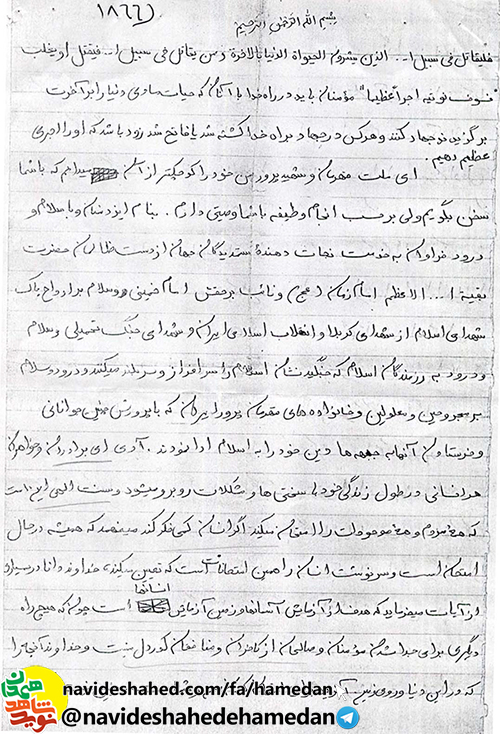 ۱۸۶۶
بسم الله الرحمن الرحیم
فلیقاتل فی سبیل ا... الذین یشرون الحیواة الدنیا بالاخرة و من یقاتل فی سبیل ا... فیقتل او یغلب
فسوف نوتیه اجراً عظیما" مؤمنان باید در راه خدا با آنان که حیات مادی دنیا را بر آخرت
برگزیدند جهاد کنند و هرکس در جهاد براه خدا کشته شد یا فاتح شد زود باشد که او را اجری
عظیم دهیم.
ای ملت مهربان و شهید پرور من خود را کوچکتر از آن میدانم که با شما
سخن بگویم ولی بر حسب انجام وظیفه با شما وصیتی دارم. بنام ایزد منان و با سلام و
درود فراوان به خدمت نجات دهندهٔ ستمدیدگان جهان از دست ظالمان حضرت
بقیة ا... الاعظم امام زمان (عج) و نائب برحقش امام خمینی و سلام بر ارواح پاک
شهدای اسلام از شهدای کربلا و انقلاب اسلامی ایران و شهدای جنگ تحمیلی و سلام
و درود به رزمندگان اسلام که جنگیدنشان اسلام را سرافراز و سربلند میکنند و درود و سلام
بر مجروحین و معلولین و خانواده های مهربان پرور ایران که با پرورش چنین جوانانی
و فرستادن آنها به جبهه ها دین خود را به اسلام ادا نمودند. آری ای برادران و خواهران
هر انسانی در طول زندگی خود با سختی ها و مشکلات روبرو میشود و سنت الهی این است
که همهٔ مردم و همهٔ موجودات را امتحان میکند اگر انسان کمی فکر کند میفهمد که همیشه در حال
امتحان است و سرنوشت انسان را همین امتحانات است که تعیین میکند، خداوند دانا در بسیاری
از آیات میفرماید که هدف از آفرینش آسمانها و زمین آزمایش انسانها است چون که هیچ راه
دیگری برای جدا شدن مؤمنان و صالحان از کافران و منافقان کوردل نیست و خداوند آنچه را
که در این دنیا و روی زمین
navideshahed.com/fa/hamedan
@navideshahedehamedan
نوید شاهد همدان